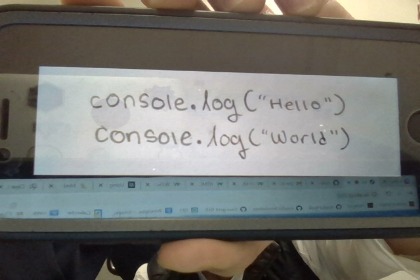 console.log("Hello")
console.log("World")